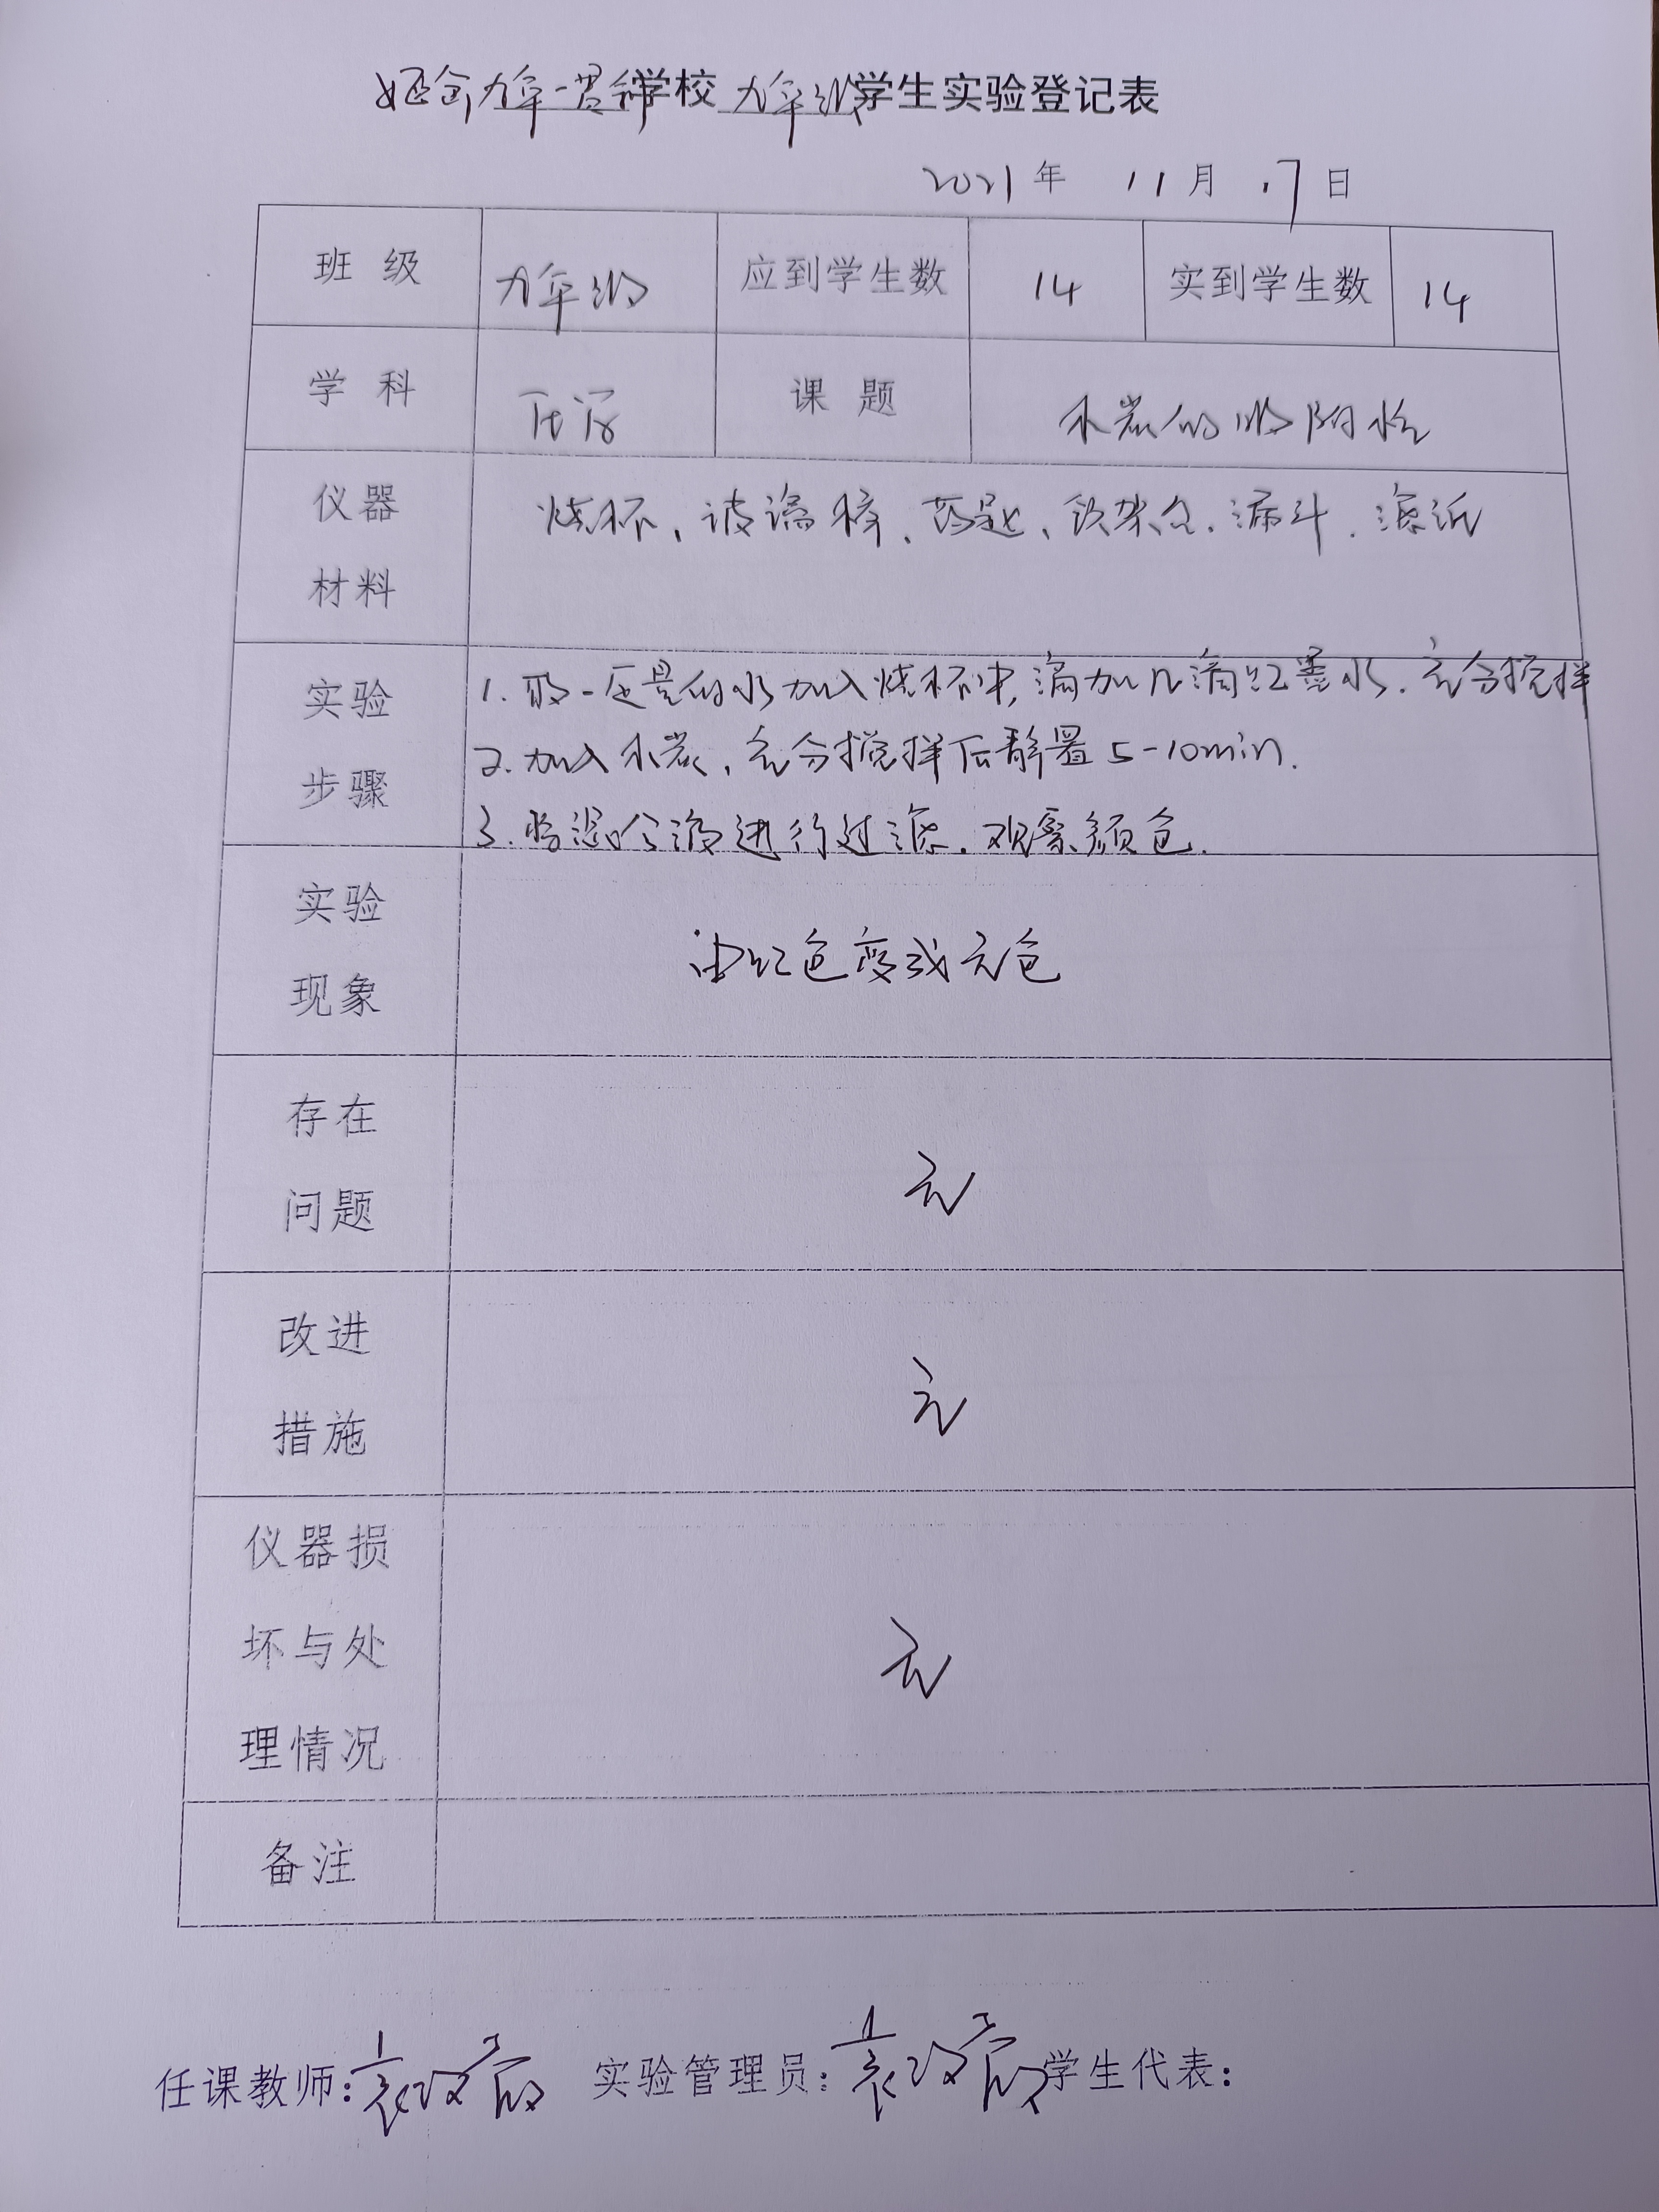 九年一贯制学校 九年级学生实验登记表
2021年 11月 17日
班 级 九年级 应到学生数 14 实到学生数 14
学 科 化学 课 题 木炭的吸附性
仪器 烧杯、玻璃棒、药匙、铁架台、漏斗、滤纸
材料
实验 1. 取一定量的水加入烧杯中,滴加几滴红墨水.充分搅拌
步骤 2. 加入木炭,充分搅拌后静置5-10min.
3. 将混合液进行过滤.观察颜色.
实验 由红色变成无色
现象
存在 无
问题
改进 无
措施
仪器损
坏与处 无
理情况
备注
任课教师: 实验管理员: 学生代表: